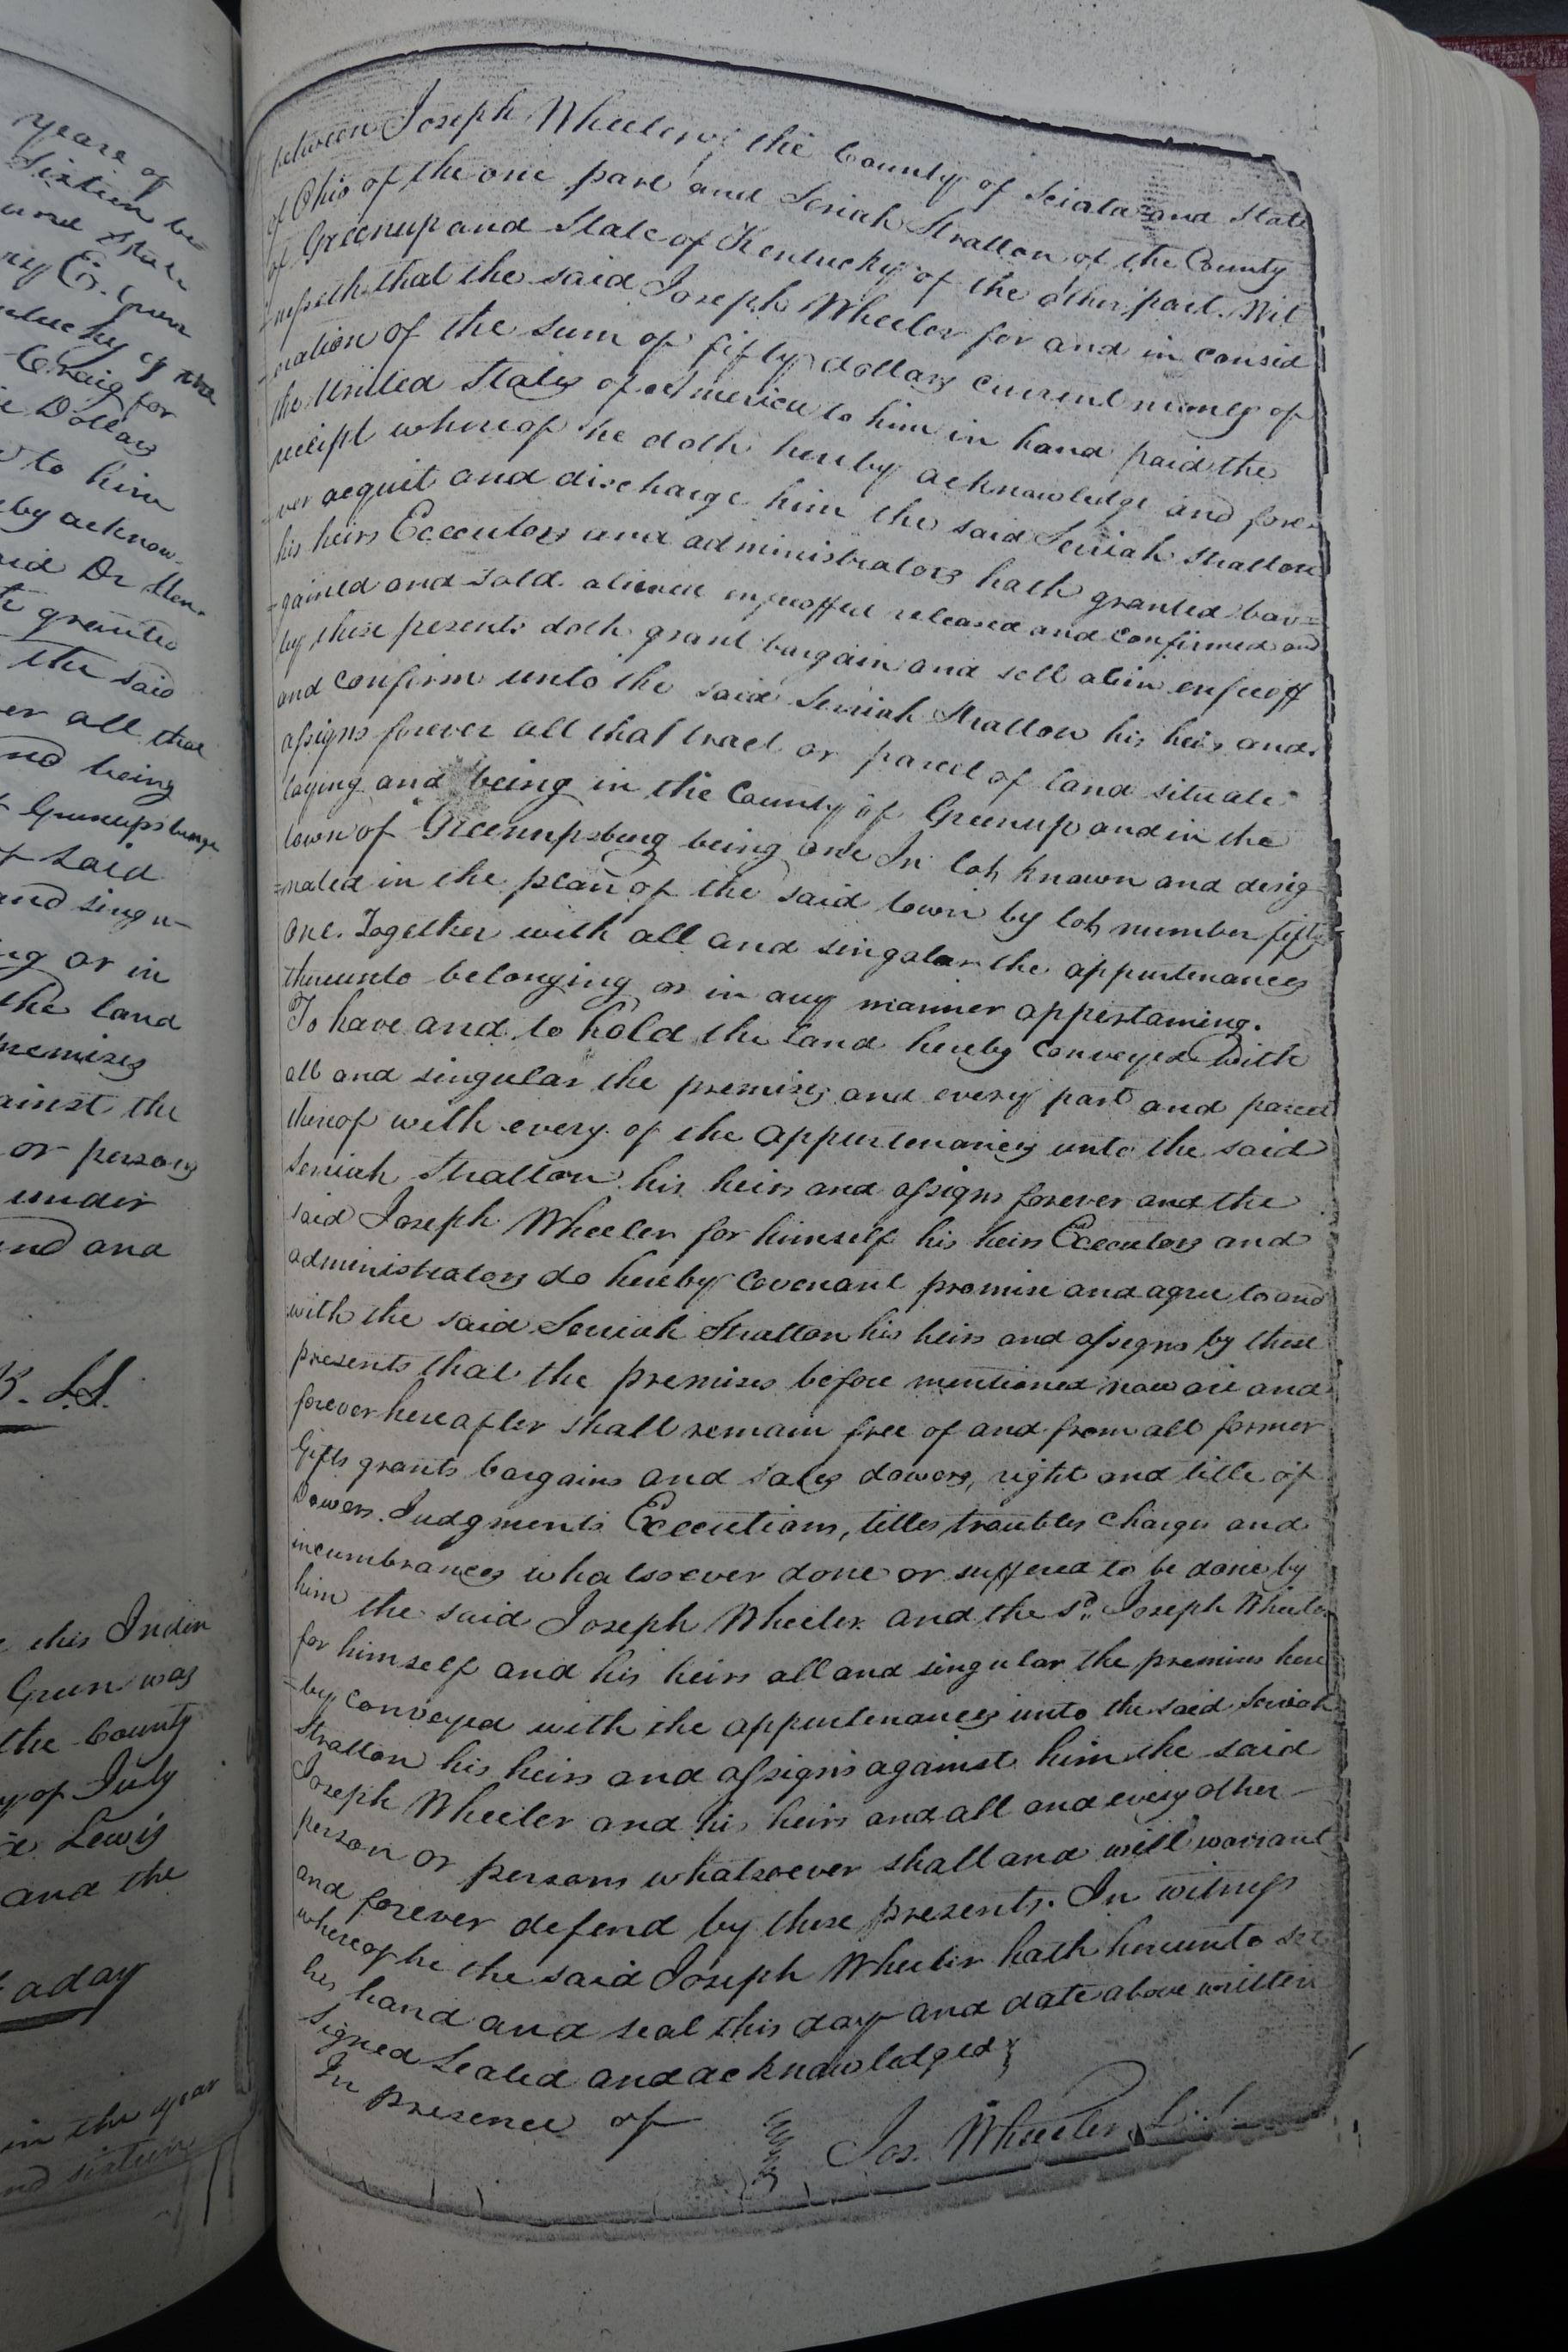 years of
Sixteen be
and State
ry G. Green
ntucky of the
Craig for
e Dollars
to him
by acknow-
aid Dr Hen-
grantes
the said
er all that
nd being
Greenupsburge
of said
and singu-
ng or in
the land
premises
ainst the
or persons
under
and and
B. LS.
this Inden
Green was
the County
y of July
Lewis
and the
aday
in the year
nd sixteen
between Joseph Wheeler of the County of Sciata and State
of Ohio of the one part and Seriah Stratton of the County
of Greenup and State of Kentucky of the other part. Wit
-nesseth that the said Joseph Wheeler for and in consid
-ration of the sum of fifty dollars current money of
the United States of America to him in hand paid the
receipt whereof he doth hereby acknowledge and fore-
ver acquit and discharge him the said Seriah Stratton
his heirs Executors and administrators hath granted bar=
-gained and sold aliened enfeoffed released and confirmed and
by these presents doth grant bargain and sell alien enfeoff
and confirm unto the said Seriah Stratton his heirs and
assigns forever all that tract or parcel of land situate
laying and being in the County of Greenup and in the
town of Greenupsburg being one In lot known and desig
=nated in the plan of the said town by lot number fifty
one. Together with all and singular the appurtenances
thereunto belonging or in any manner appertaining.
To have and to hold the land hereby conveyed with
all and singular the premises and every part and parcel
thereof with every of the appurtenances unto the said
Seriah Stratton his heirs and assigns forever and the
said Joseph Wheeler for himself his heirs Executors and
administrators do hereby covenant promise and agree to and
with the said Seriah Stratton his heirs and assigns by these
presents that the premises before mentioned now are and
forever hereafter shall remain free of and from all former
Gifts grants bargains and sales dowers, right and title of
Dowers. Judgments Executions, titles troubles charges and
incumbrances whatsoever done or suffered to be done by
him the said Joseph Wheeler and the sd. Joseph Wheeler
for himself and his heirs all and singular the premises here
=by conveyed with the appurtenances unto the said Seriah
Stratton his heirs and assigns against him the said
Joseph Wheeler and his heirs and all and every other
person or persons whatsoever shall and will warrant
and forever defend by these presents. In witness
whereof he the said Joseph Wheeler hath hereunto set
his hand and seal this day and date above written
Signed Sealed and acknowledged
In presence of
Jos. Wheeler L.S.